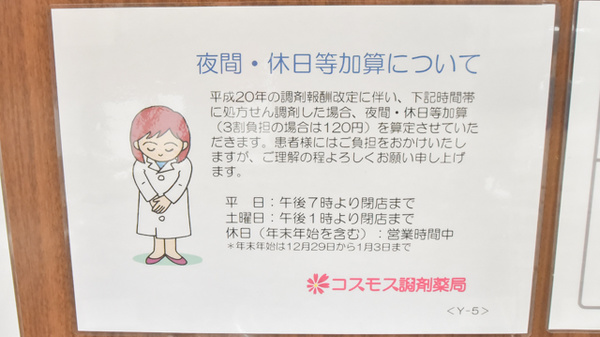 夜間・休日等加算について
平成20年の調剤報酬改定に伴い、下記時間帯
に処方せん調剤した場合、夜間・休日等加算
（3割負担の場合は120円）を算定させていた
だきます。患者様にはご負担をおかけいたし
ますが、ご理解の程よろしくお願い申し上げ
ます。
平　日：午後7時より閉店まで
土曜日：午後1時より閉店まで
休日（年末年始を含む）：営業時間中
＊年末年始は12月29日から1月3日まで
コスモス調剤薬局
＜Y-5＞